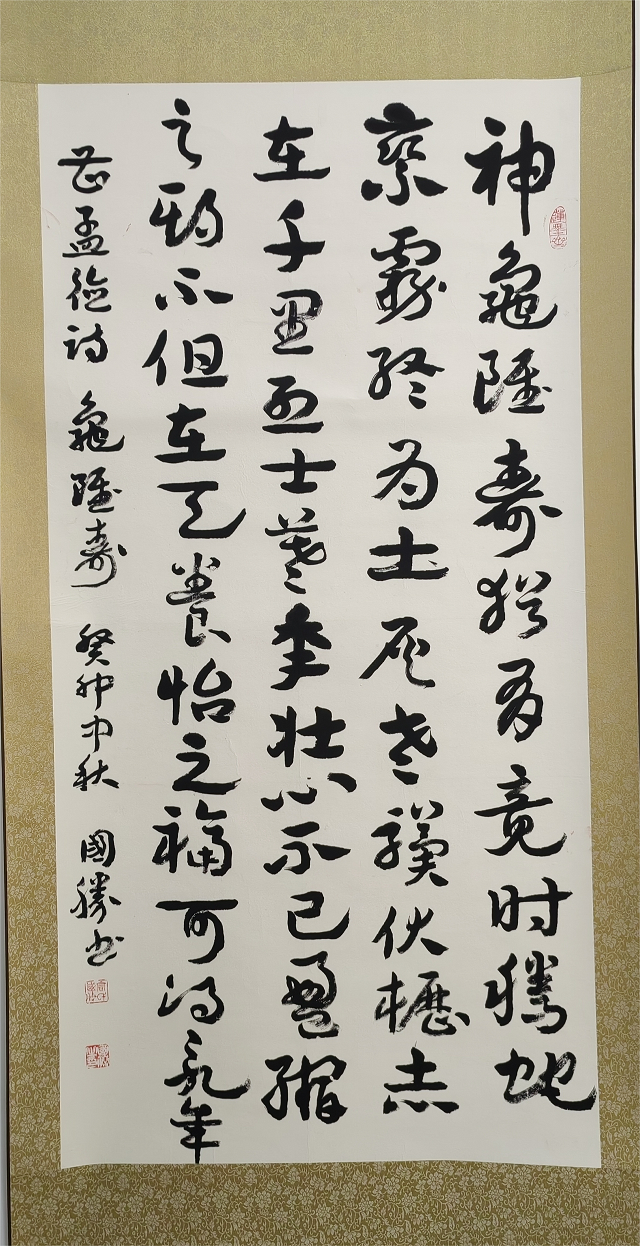 神龜雖壽猶有竟时騰蛇
乘霧終为土灰老驥伏櫪志
在千里烈士暮年壮心不已盈縮
之期不但在天養怡之福可得永年
曹孟德诗 龜雖壽 癸卯中秋 國勝书